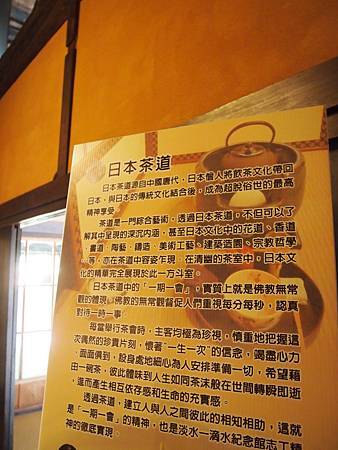 日本茶道
日本茶道源自中國唐代，日本僧人將飲茶文化帶回
日本，與日本的傳統文化結合後，成為超脫俗世的最高
精神享受。
茶道是一門綜合藝術，透過日本茶道，不但可以了
解其中呈現的深沉內涵，甚至日本文化中的花道、香道
、書道、陶藝、鑄造、美術工藝、建築造園、宗教哲學
…等，亦在茶道中容姿乍現，在清幽的茶室中，日本文
化的精華完全展現於此一方斗室。
日本茶道中的「一期一會」，實質上就是佛教無常
觀的體現。佛教的無常觀督促人們重視每分每秒，認真
對待一時一事。
每當舉行茶會時，主客均極為珍視，慎重地把握這
次偶然的珍貴片刻，懷著"一生一次"的信念，竭盡心力
面面俱到，設身處地細心為人安排準備一切，希望藉
由一碗茶，彼此體味到人生如同茶沫般在世間轉瞬即逝
，進而產生相互依存感和生命的充實感。
透過茶道，建立人與人之間彼此的相知相助，這就
是「一期一會」的精神，也是淡水一滴水紀念館志工精
神的徹底實現。